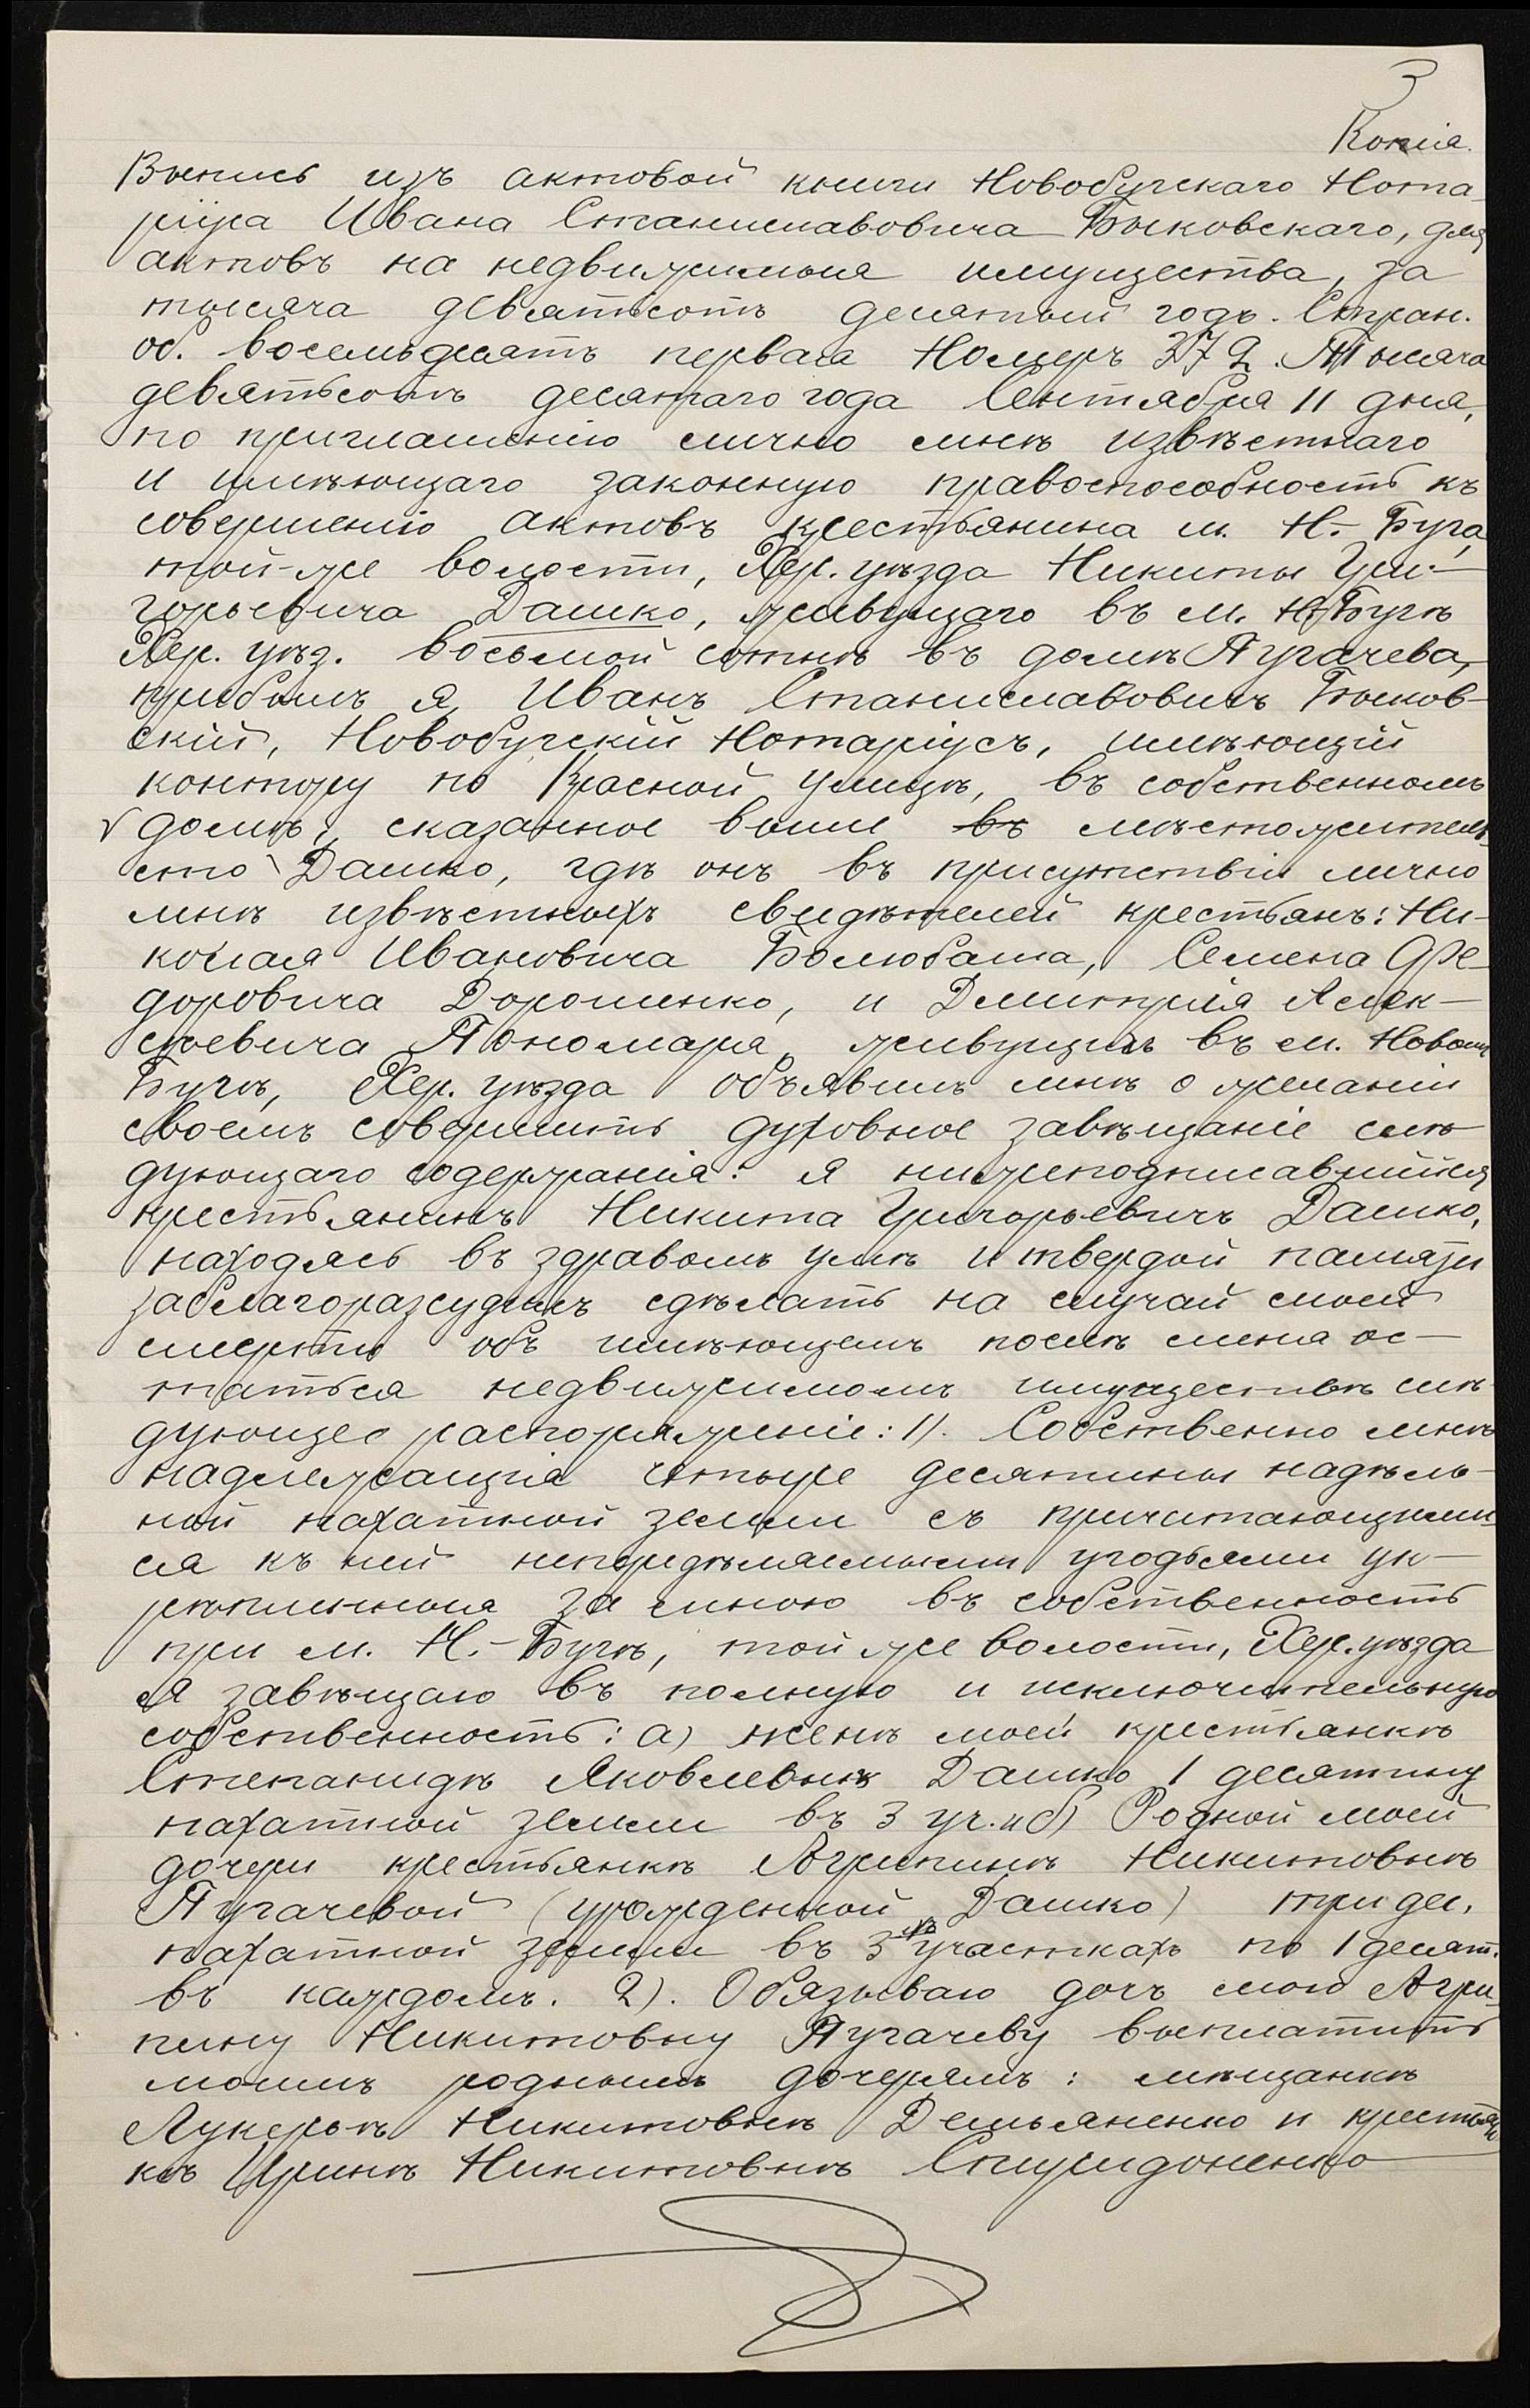 3
Копія.
Выпись изъ актовой книги Новобугскаго Нота-
ріуса Ивана Станиславовича Быковскаго, для
актовъ на недвижимыя имущества, за
тысяча девятьсотъ десятый годъ. Стран.
об. восемьдесятъ первая Номеръ 372. Тысяча
девятьсотъ десятаго года Сентября 11 дня,
по приглашенію лично мнѣ извѣстнаго
и имѣющаго законную правоспособность къ
совершенію актовъ крестьянина м. Н.-Буга,
той-же волости, Хер. уѣзда Никиты Гри-
горьевича Дашко, живущаго въ м. Н-Бугѣ
Хер. уѣз. восьмой сотнѣ въ домѣ Пугачева,
прибылъ я, Иванъ Станиславовичъ Быков-
скій, Новобугскій Нотаріусъ, имѣющій
контору по Красной улицѣ, въ собственномъ
√ домѣ, сказанное выше въ мѣстожитель-
сто Дашко, гдѣ онъ въ присутствіи лично
мнѣ извѣстныхъ свидѣтелей крестьянъ: Ни-
колая Ивановича Болюбаша, Семена Фе-
доровича Дорошенко, и Дмитрія Алек-
сѣевича Пономаря, живущихъ въ м. Новомъ
Бугѣ, Хер. уѣзда объявилъ мнѣ о желаніи
своемъ совершить духовное завѣщаніе слѣ-
дующаго содержанія: я нижеподписавшійся
крестьянинъ Никита Григорьевичъ Дашко,
находясь въ здравомъ умѣ и твердой памяти
заблагоразсудилъ сдѣлать на случай моей
смерти объ имѣющемъ послѣ меня ос-
таться недвижимомъ имуществѣ слѣ-
дующее распоряженіе: 1). Собственно мнѣ
надлежащія четыре десятины надѣль-
ной пахатной земли съ причитающими-
ся къ ней неопредѣляемыми угодьями ук-
рѣпленныя за мною въ собственность
при м. Н.-Бугѣ, той же волости, Хер. уѣзда
я завѣщаю въ полную и исключительную
собственность: а) женѣ моей крестьянкѣ
Степанидѣ Яковлевнѣ Дашко 1 десятину
пахатной земли въ 3 уч. и б) Родной моей
дочери крестьянкѣ Агрипинѣ Никитовнѣ
Пугачевой (урожденной Дашко) три дес.
пахатной земли въ 3хъ участкахъ по 1 десят.
въ каждомъ. 2). Обязываю дочь мою Агри-
пину Никитовну Пугачеву выплатить
моимъ роднымъ дочерямъ: мѣщанкѣ
Лукерьѣ Никитовнѣ Демьяненко и крестьян-
кѣ Иринѣ Никитовнѣ Спиридоненко